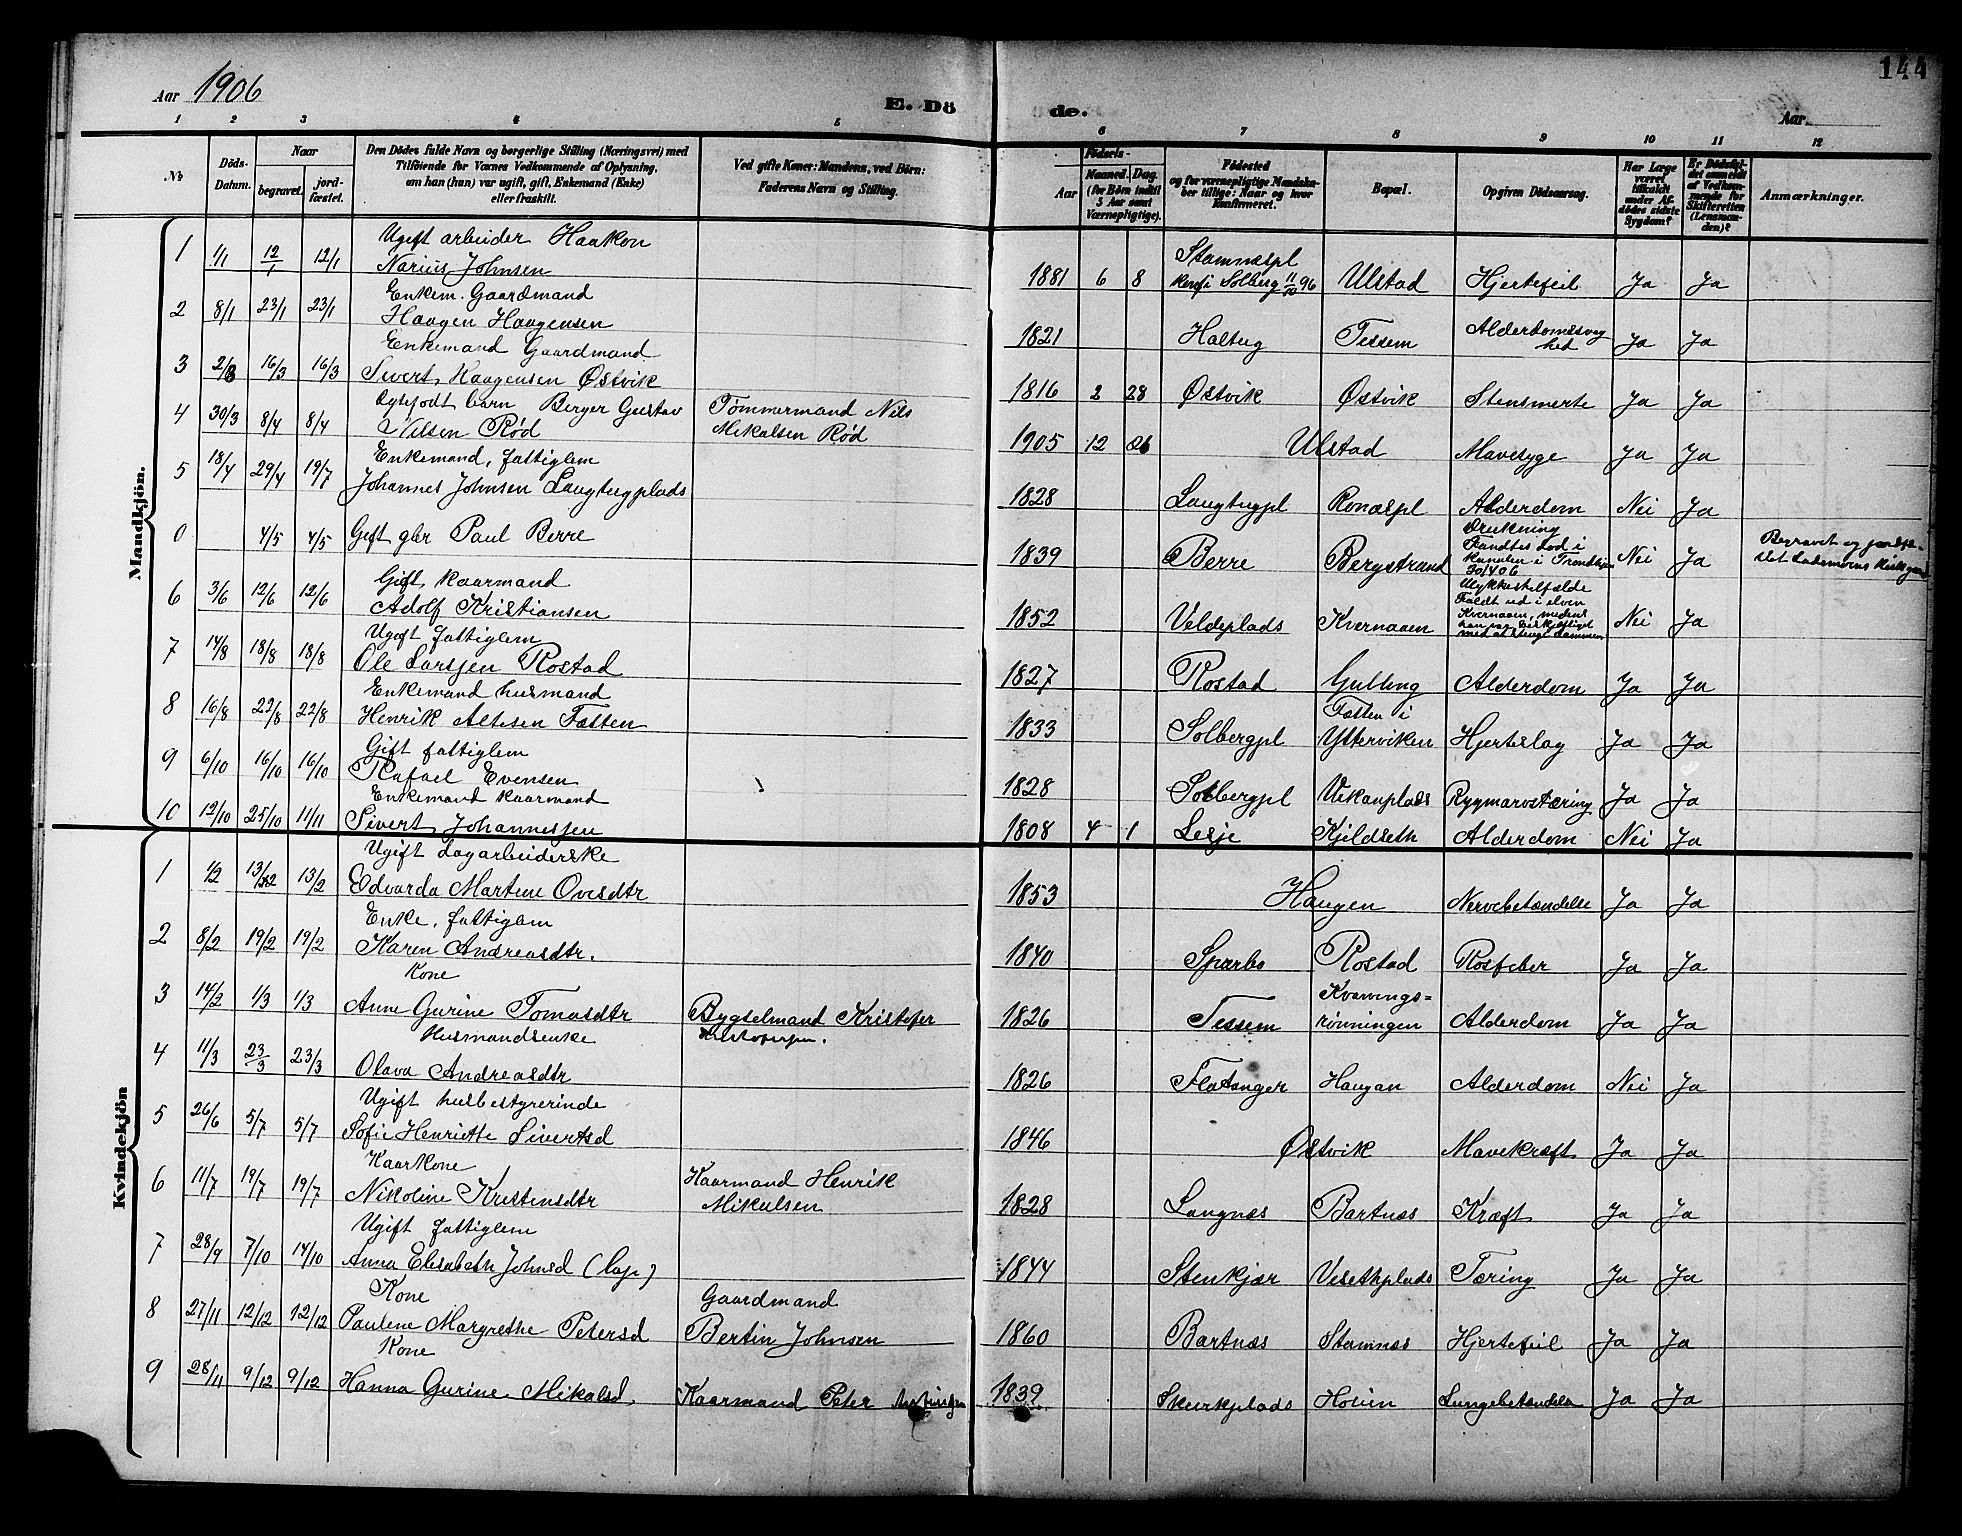 144
Aar 1906
E. Dö
de.
Aar
1 2 3 4 5 6 7 8 9 10 11 12
No
Döds-
Datum.
Naar
begravet.
jord-
fæstet.
Den Dödes fulde Navn og borgerlige Stilling (Næringsvei) med
Tilföiende for Voxnes Vedkommende af Oplysning,
om han (hun) var ugift, gift, Enkemand (Enke)
eller fraskilt.
Ved gifte Koner: Mandens, ved Börn:
Faderens Navn og Stilling.
Födsels-
Aar
Maaned. Dag.
(for Börn indtil
5 Aar samt
Værnepligtige).
Födested
og for værnepligtige Mandskaber tillige: Naar og hvor
konfirmeret.
Bopæl.
Opgiven Dödsaarsag.
Har Læge
været
tilkaldt
under Af-
dödes sidste
Sygdom?
Er Dödsfal-
det anmeldt
af Vedkom-
mende for
Skifteretten
(Lensman-
den)?
Anmærkninger.
Mandkjön.
1 1/1 12/1 12/1 Ugift arbeider Haakon
Narius Johnsen 1881 6 8 Stamnæspl
konfi Solberg 11/10 96 Ulstad Hjertefeil Ja Ja
2 8/1 23/1 23/1 Enkem. Gaardmand
Haagen Haagensen 1821 Haltug Tessem Alderdomssvag
hed Ja Ja
3 2/3 16/3 16/3 Enkemand Gaardmand
Sivert Haagensen Østvik 1816 2 28 Østvik Østvik Stensmerte Ja Ja
4 30/3 8/4 8/4 Egtefødt barn Berger Gustav
Nilsen Rød Tømmermand Nils
Mikalsen Rød 1905 12 26 Ulstad Mavesyge Ja Ja
5 18/4 29/4 19/7 Enkemand, fattiglem
Johannes Johnsen Langtugplads 1828 Langtugpl Ronæspl Alderdom Nei Ja
0 4/5 4/5 Gift gbr Paul Berre 1839 Berre Bergstrand Drukning
Fandtes død i
Kanalen i Trondhjem
30/4 06 Nei Ja Begravet og jordfæ-
stet Lademoens Kirkegaard
6 3/6 12/6 12/6 Gift kaarmand
Adolf Kristiansen 1852 Veldeplads Kvernaaen Ulykkestilfælde
Faldt ud i elven
Kvernaaen, medens
han var beskjeftiget
med at stenge dammen Nei Ja
7 14/8 18/8 18/8 Ugift fattiglem
Ole Larsen Rostad 1827 Rostad Gulling Alderdom Ja Ja
8 16/8 22/8 22/8 Enkemand husmand
Henrik Altesen Fætten 1833 Solbergpl Fætten i
Ytterviken Hjerteslag Ja Ja
9 6/10 16/10 16/10 Gift fattiglem
Rafael Evensen 1828 Solbergpl Vikanplads Rygmarvstæring Ja Ja
10 12/10 25/10 11/11 Enkemand kaarmand
Sivert Johannessen 1808 4 1 Lesje Kjeldseth Alderdom Nei Ja
Kvindekjön
1 1/2 13/2 13/2 Ugift dagarbeiderske
Edvarda Martine Ovesdtr 1853 Haugen Nervebetændelse Ja Ja
2 8/2 19/2 19/2 Enke, fattiglem
Karen Andreasdtr. 1840 Sparbo Rostad Rosfeber Ja Ja
3 14/2 1/3 1/3 Kone
Anne Gurine Tomasdtr Bygselmand Kristofer
Kristofersen. 1826 Tessem Kvarvings=
rønningen Alderdom Ja Ja
4 11/3 23/3 23/3 Husmandsenke
Olava Andreasdtr 1826 Flatanger Haugan Alderdom Nei Ja
5 26/6 5/7 5/7 Ugift husbestyrerinde
Sofie Henriette Sivertsd 1846 Østvik Mavekræft Ja Ja
6 11/7 19/7 19/7 Kaarkone
Nikoline Kristensdtr Kaarmand Henrik
Mikalsen 1828 Langnæs Bartnæs Kræft Ja Ja
7 28/9 7/10 14/10 Ugift fattiglem
Anna Elisabeth Johnsd (lap) 1844 Stenkjær Vesethplads Tæring Ja Ja
8 27/11 12/12 12/12 Kone
Pauline Margrethe Petersd Gaardmand
Bertin Johnsen 1860 Bartnæs Stamnæs Hjertefeil Ja Ja
9 28/11 9/12 9/12 Kone
Hanna Gurine Mikalsd. Kaarmand Peter 1839 Skurkplads Holien Lungebetændelse Ja Ja